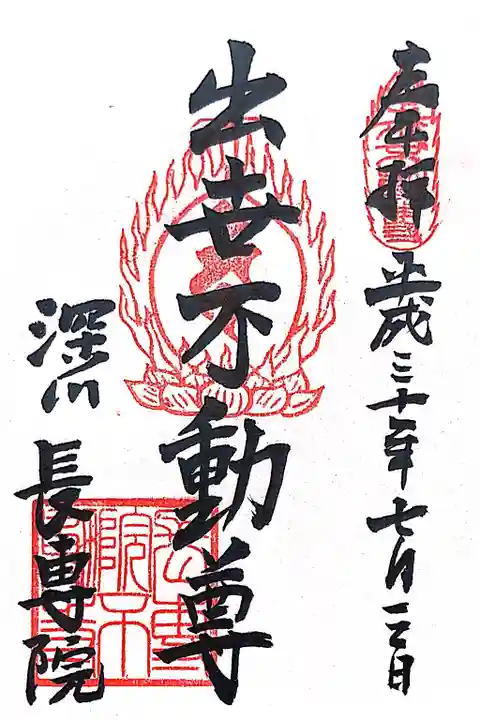 奉拝 平成三十年七月三日
出世不動尊
深川 長専院